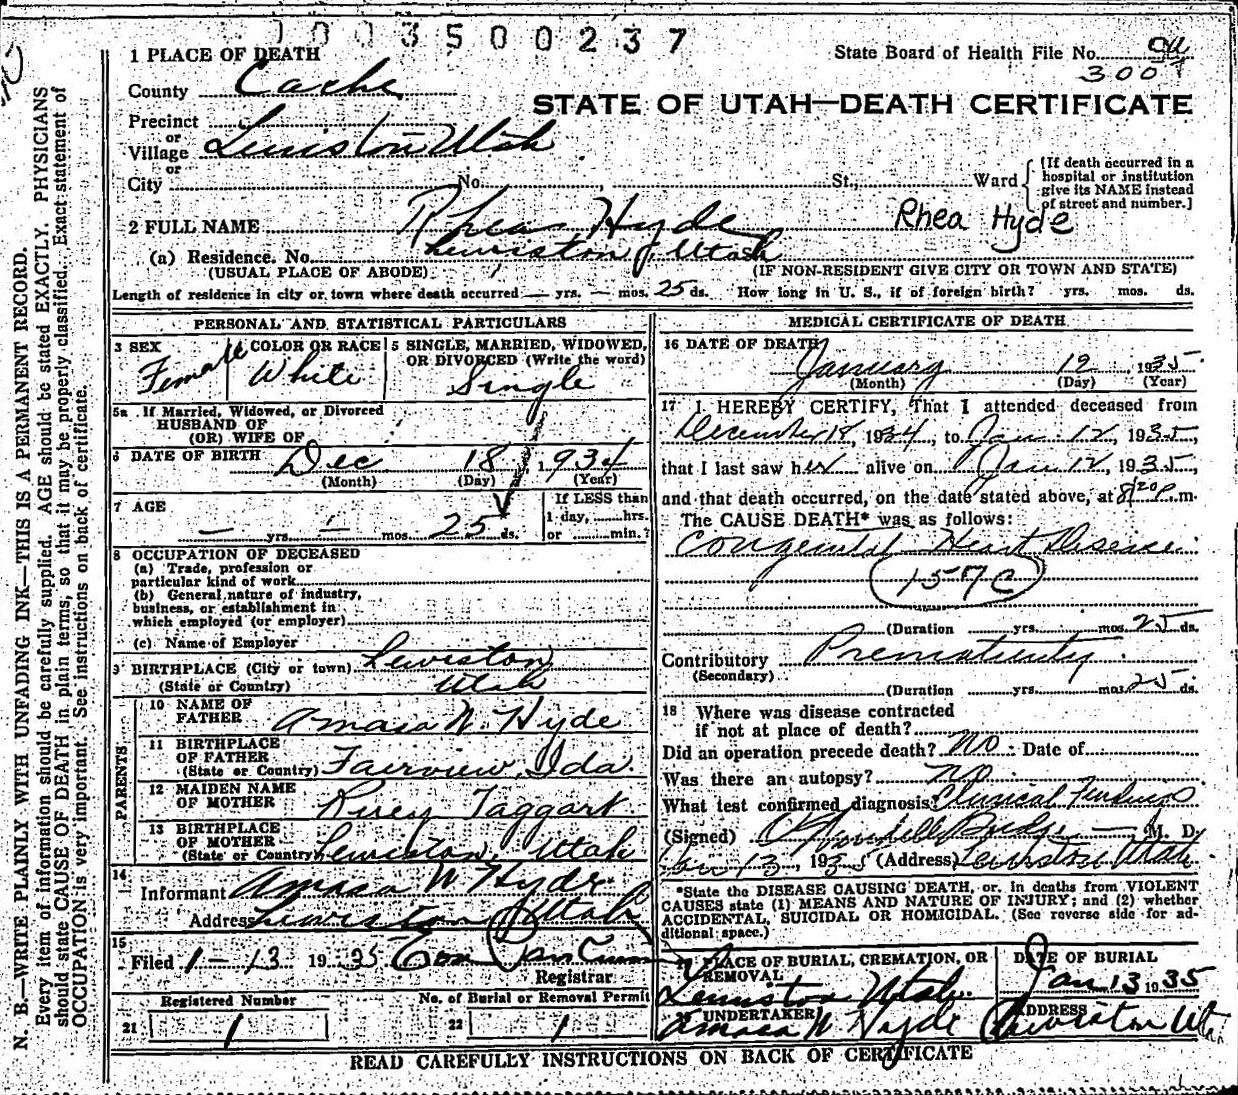 1003500237
State Board of Health File No. 
300
1 PLACE OF DEATH
County Cache
STATE OF UTAH—DEATH CERTIFICATE
Precinct
or
Village Lewiston Utah
or
City No. St., Ward
[If death occurred in a
hospital or institution
give its NAME instead
of street and number.]
2 FULL NAME Rhea Hyde Rhea Hyde
(a) Residence. No. Lewiston, Utah
(USUAL PLACE OF ABODE) (IF NON-RESIDENT GIVE CITY OR TOWN AND STATE)
Length of residence in city or town where death occurred — yrs. — mos. 25 ds. How long in U. S., if of foreign birth? yrs. mos. ds.
PERSONAL AND STATISTICAL PARTICULARS
3 SEX 4 COLOR OR RACE 5 SINGLE, MARRIED, WIDOWED,
OR DIVORCED (Write the word)
Female White Single
5a If Married, Widowed, or Divorced
HUSBAND OF
(OR) WIFE OF
6 DATE OF BIRTH Dec 18 1934
(Month) (Day) (Year)
7 AGE
— yrs. — mos. 25 ds.
If LESS than
1 day, hrs.
or min.?
8 OCCUPATION OF DECEASED
(a) Trade, profession or
particular kind of work
(b) General nature of industry,
business, or establishment in
which employed (or employer)
(c) Name of Employer
9 BIRTHPLACE (City or town) Lewiston
(State or Country) Utah
PARENTS
10 NAME OF
FATHER Amasa W. Hyde
11 BIRTHPLACE
OF FATHER
(State or Country) Fairview, Ida
12 MAIDEN NAME
OF MOTHER Taggart
13 BIRTHPLACE
OF MOTHER
(State or Country) Lewiston, Utah
14
Informant Amasa W Hyde
Address Lewiston, Utah
15
Filed 1-13 1935
Registrar
Registered Number No. of Burial or Removal Permit
21 1 22 1
MEDICAL CERTIFICATE OF DEATH
16 DATE OF DEATH
January 12, 1935
(Month) (Day) (Year)
17 I HEREBY CERTIFY, That I attended deceased from
December 18, 1934, to Jan. 12, 1935,
that I last saw her alive on Jan 12, 1935,
and that death occurred, on the date stated above, at 8:20 p.m.
The CAUSE DEATH* was as follows:
Congenital Heart Disease
157C
(Duration yrs. mos. 25 ds.
Contributory Prematurity.
(Secondary)
(Duration yrs. mos. 25 ds.
18 Where was disease contracted
if not at place of death?
Did an operation precede death? No Date of
Was there an autopsy? No
What test confirmed diagnosis? Clinical Findings
(Signed) Budge M. D.
Jan 13 1935 (Address) Lewiston Utah
*State the DISEASE CAUSING DEATH, or, in deaths from VIOLENT
CAUSES state (1) MEANS AND NATURE OF INJURY; and (2) whether
ACCIDENTAL, SUICIDAL OR HOMICIDAL. (See reverse side for ad-
ditional space.)
PLACE OF BURIAL, CREMATION, OR
REMOVAL
Lewiston Utah
DATE OF BURIAL
Jan 13 1935
UNDERTAKER
Amasa W Hyde
ADDRESS
Lewiston Ut.
READ CAREFULLY INSTRUCTIONS ON BACK OF CERTIFICATE
N. B.—WRITE PLAINLY WITH UNFADING INK—THIS IS A PERMANENT RECORD.
Every item of information should be carefully supplied. AGE should be stated EXACTLY. PHYSICIANS
should state CAUSE OF DEATH in plain terms, so that it may be properly classified. Exact statement of
OCCUPATION is very important. See instructions on back of certificate.